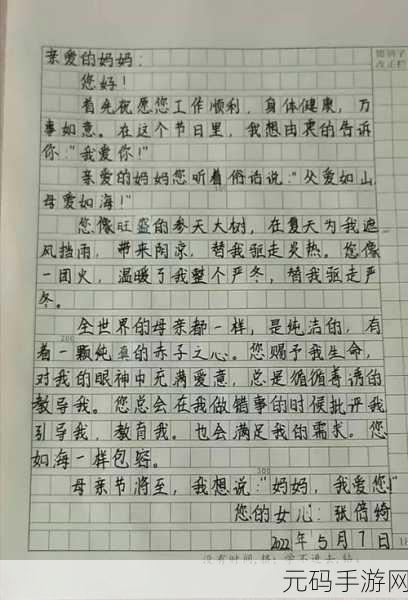 亲爱的妈妈：
您好！
首先祝愿您工作顺利，身体健康，万
事如意。在这个节日里，我想由衷的告诉
你："我爱你！"
亲爱的妈妈您听着俗话说："父爱如山，
母爱如海！"
您像旺盛的参天大树，在夏天为我遮
风挡雨，带来阴凉，替我驱走炎热。您像
一团火，温暖了我整个严冬，替我驱走严
冬。
全世界的母亲都一样，是纯洁的，有
200
着一颗纯真的赤子之心。您赐予我生命，
对我的眼神中充满爱意，总是循循善诱的
教导我。您总会在我做错事的时候批评我
引导我，教育我。也会满足我的需求。您
如海一样包容。
300
母亲节将至，我想说："妈妈，我爱您！"
您的女儿：张倍绮
2022年5月7日
错别字
改正栏
元码手游网